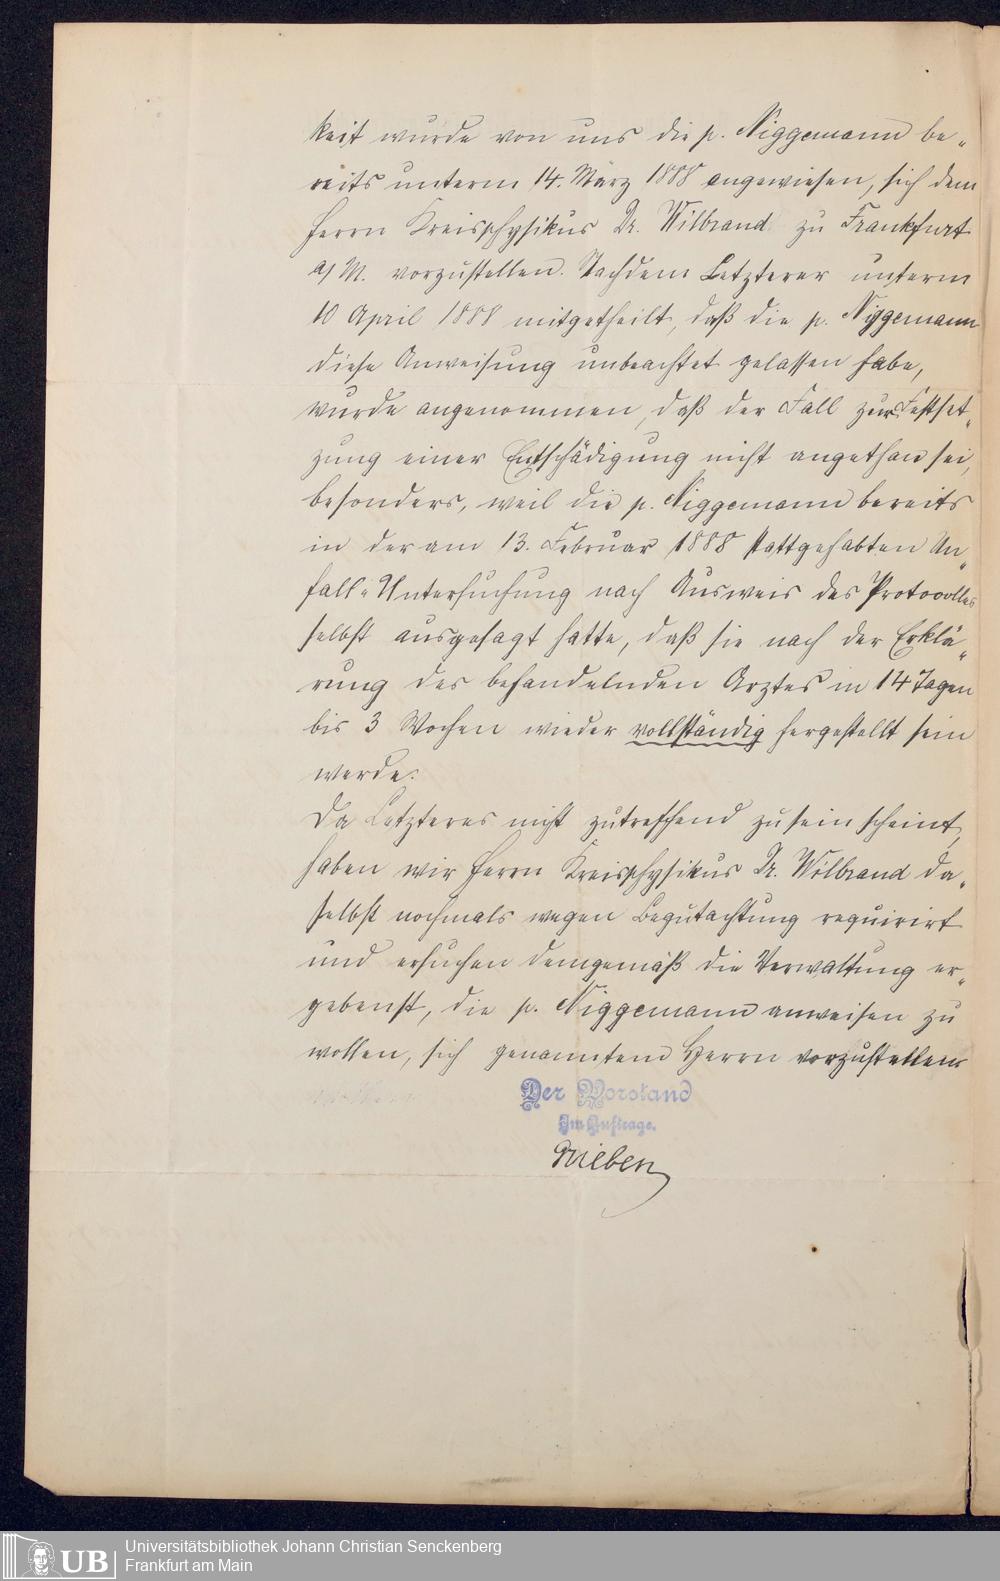 keit wurde von uns die p. Niggemann be„
reits unterm 14. März 1888 angewiesen, sich dem
Herrn Kreisphysikus Dr. Wilbrand zu Frankfurt
a/M. vorzustellen. Nachdem Letzterer unterm
10 April 1888 mitgetheilt, daß die p. Niggemann
diese Anweisung unbeachtet gelassen habe,
wurde angenommen, daß der Fall zur Festset„
zung einer Entschädigung nicht angethan sei,
besonders, weil die p. Niggemann bereits
in der am 13. Februar 1888 stattgehabten Un„
fall„Untersuchung nach Ausweis des Protocolles
selbst ausgesagt hatte, daß sie nach der Erklä„
rung des behandelnden Arztes in 14 Tagen
bis 3 Wochen wieder vollständig hergestellt sein
werde.
Da Letzteres nicht zutreffend zu sein scheint,
haben wir Herrn Kreisphysikus Dr. Wilbrand da„
selbst nochmals wegen Begutachtung requirirt
und ersuchen demgemäß die Verwaltung er„
gebenst, die p. Niggemann anweisen zu
wollen, sich genanntem Herrn vorzustellen.
Der Vorstand
Im Auftrage.
UB Universitätsbibliothek Johann Christian Senckenberg
Frankfurt am Main